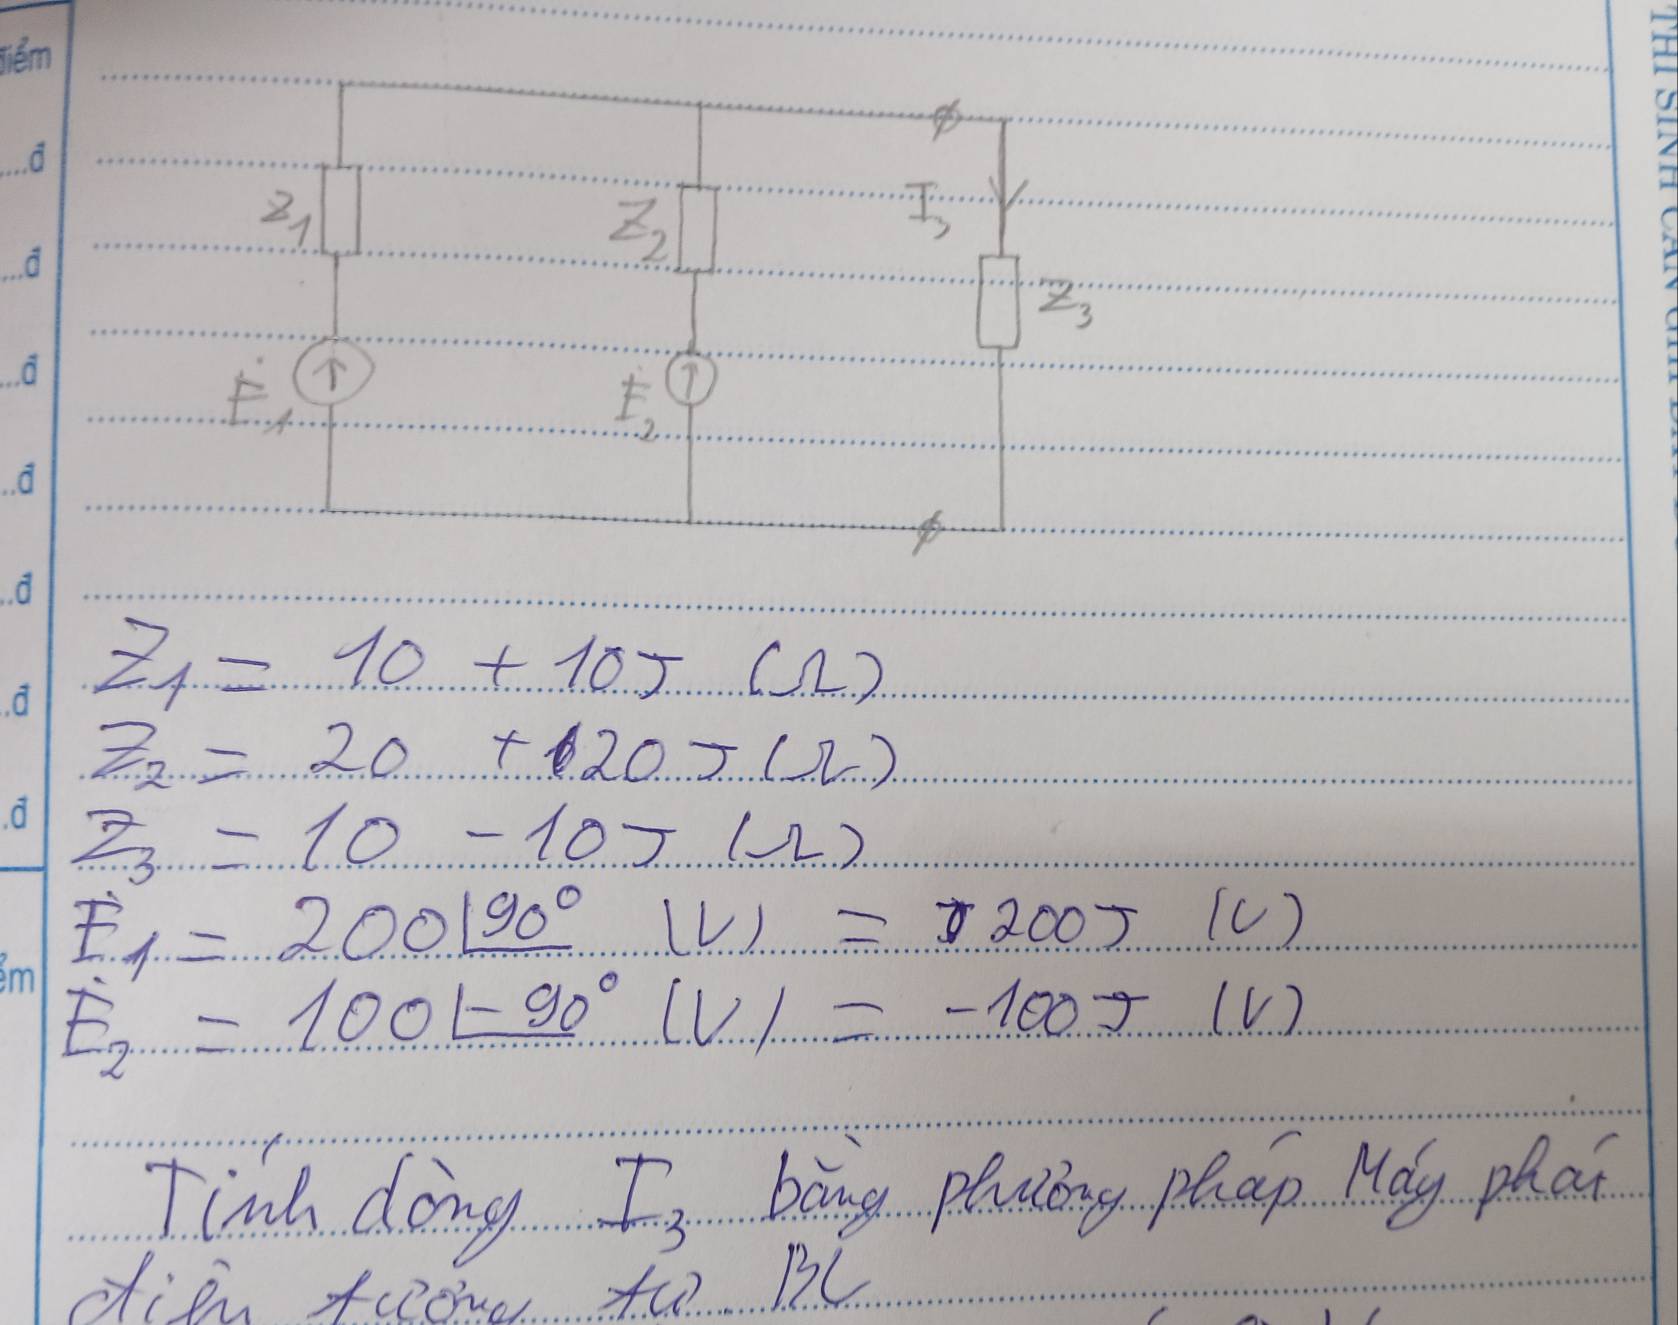 điểm
....đ
...đ
...đ
...đ
...đ
..đ
.đ
Z1
Z2
I3
Z3
Ė1
Ė2
Z1 = 10 + 10J (Ω)
Z2 = 20 + 20J (Ω)
Z3 = 10 - 10J (Ω)
Ė1 = 200∟90° (V) = 200J (V)
Ė2 = 100∟-90° (V) = -100J (V)
Tính dòng I3 bằng phương pháp Máy phát
điện tương tự
THÍ SINH